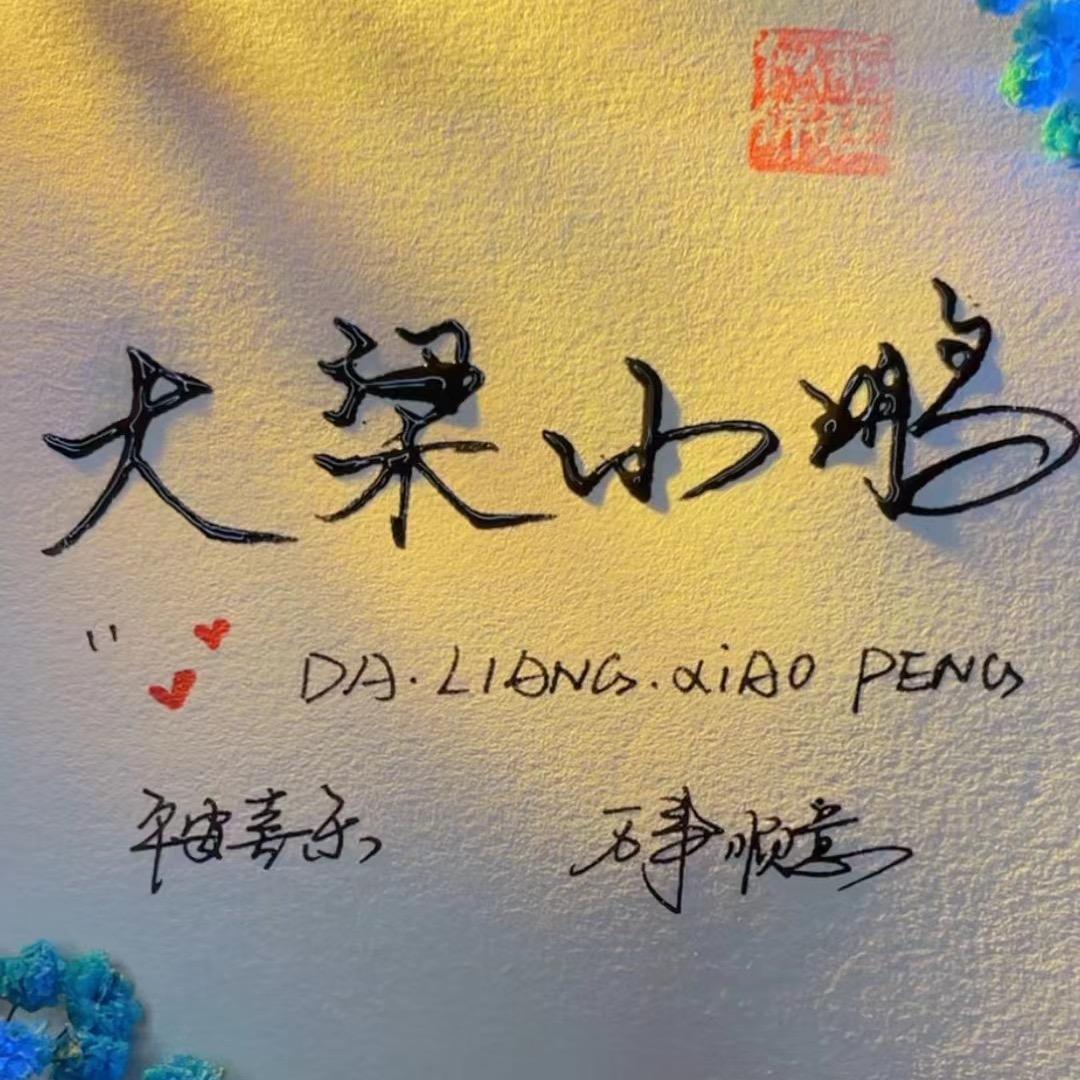 大梁小鹏
DA.LIANG.XiAO PENG
平安喜乐 万事顺意